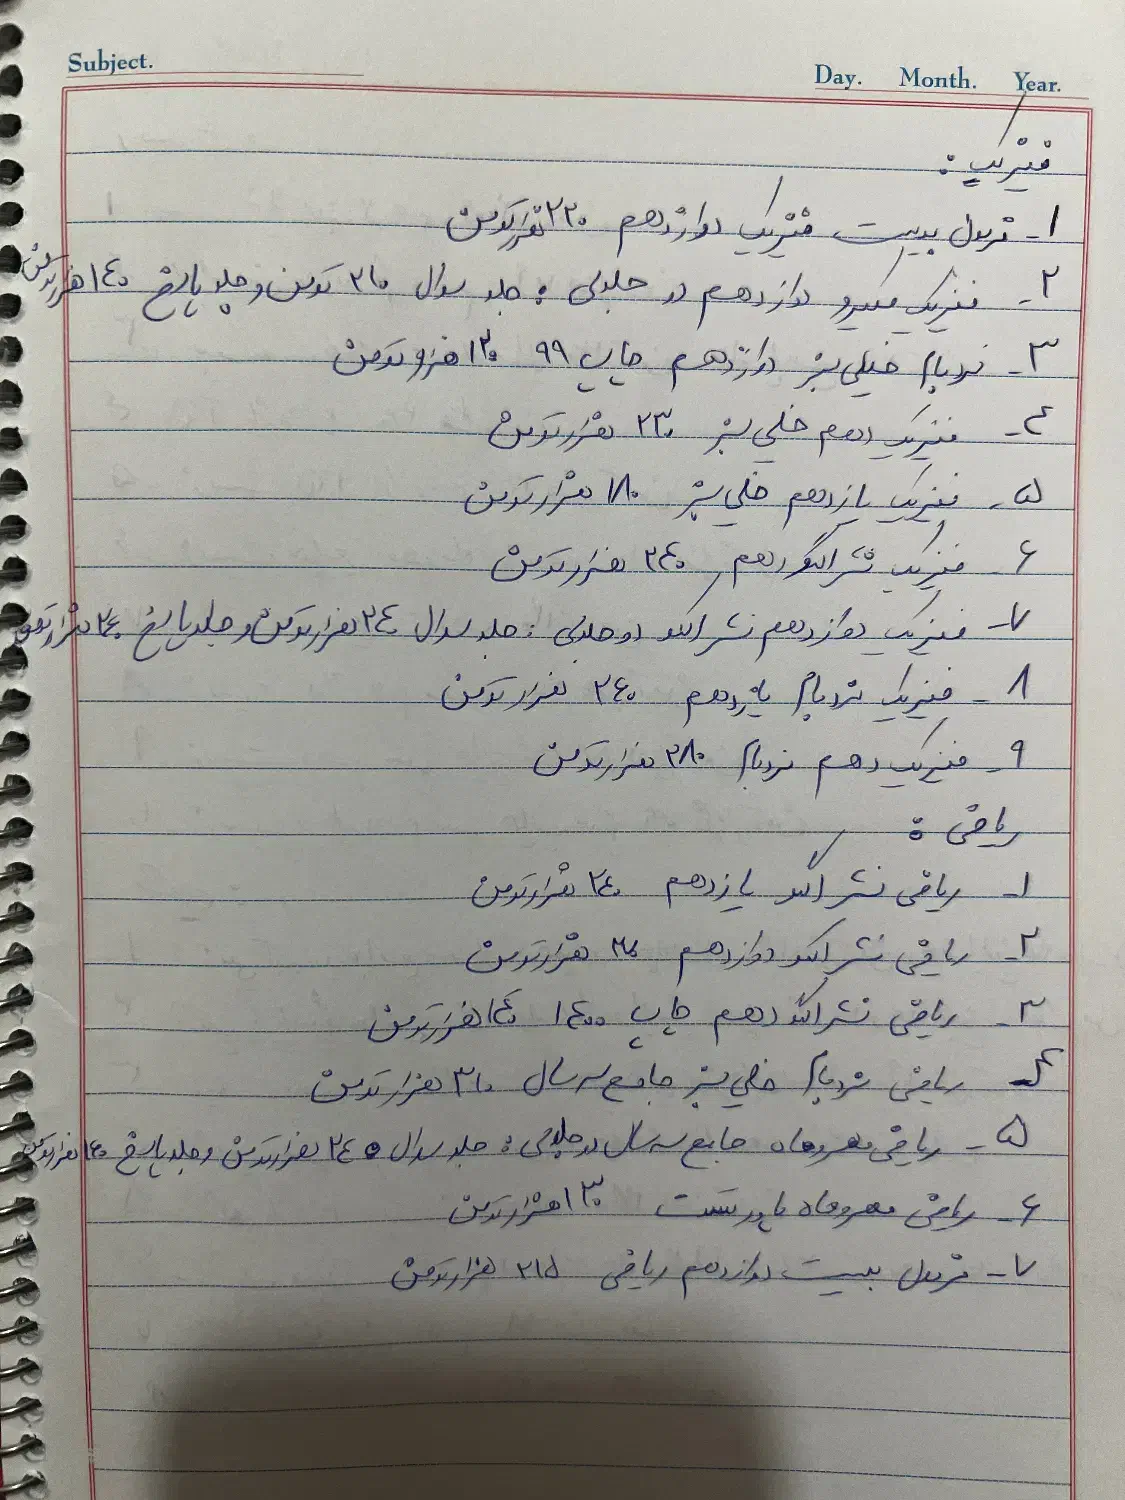 Subject.
Day. Month. Year.
فیزیک :
۱- تربل بیست فیزیک دوازدهم ۲۲۰ هزارتومن
۲- فیزیک میکرو دوازدهم دو جلدی : جلد سوال ۳۱۰ تومن و جلد پاسخ ۱۴۰ هزارتومن
۳- نردبام خیلی سبز دوازدهم چاپ ۹۹ ۱۳۰ هزار تومن
۴- فیزیک دهم خیلی سبز ۲۳۰ هزارتومن
۵- فیزیک یازدهم خیلی سبز ۱۸۰ هزارتومن
۶- فیزیک نشر الگو دهم ۲۴۰ هزارتومن
۷- فیزیک دوازدهم نشر الگو دو جلدی : جلد سوال ۲۴۰ هزارتومن و جلد پاسخ هزارتومن
۸- فیزیک نردبام یازدهم ۲۶۰ هزار تومن
۹- فیزیک دهم نردبام ۲۸۰ هزارتومن
ریاضی :
۱- ریاضی نشر الگو یازدهم ۲۴۰ هزارتومن
۲- ریاضی نشر الگو دوازدهم هزارتومن
۳- ریاضی نشر الگو دهم چاپ ۱۴۰۰ ۱۴۰ هزارتومن
۴- ریاضی نردبام خیلی سبز جامع سه سال ۳۱۰ هزارتومن
۵- ریاضی مهروماه جامع سه سال دو جلدی : جلد سوال ۲۴۰ هزارتومن و جلد پاسخ هزارتومن
۶- ریاضی مهروماه پاور تست ۱۳۰ هزارتومن
۷- تربل بیست دوازدهم ریاضی ۲۱۵ هزارتومن